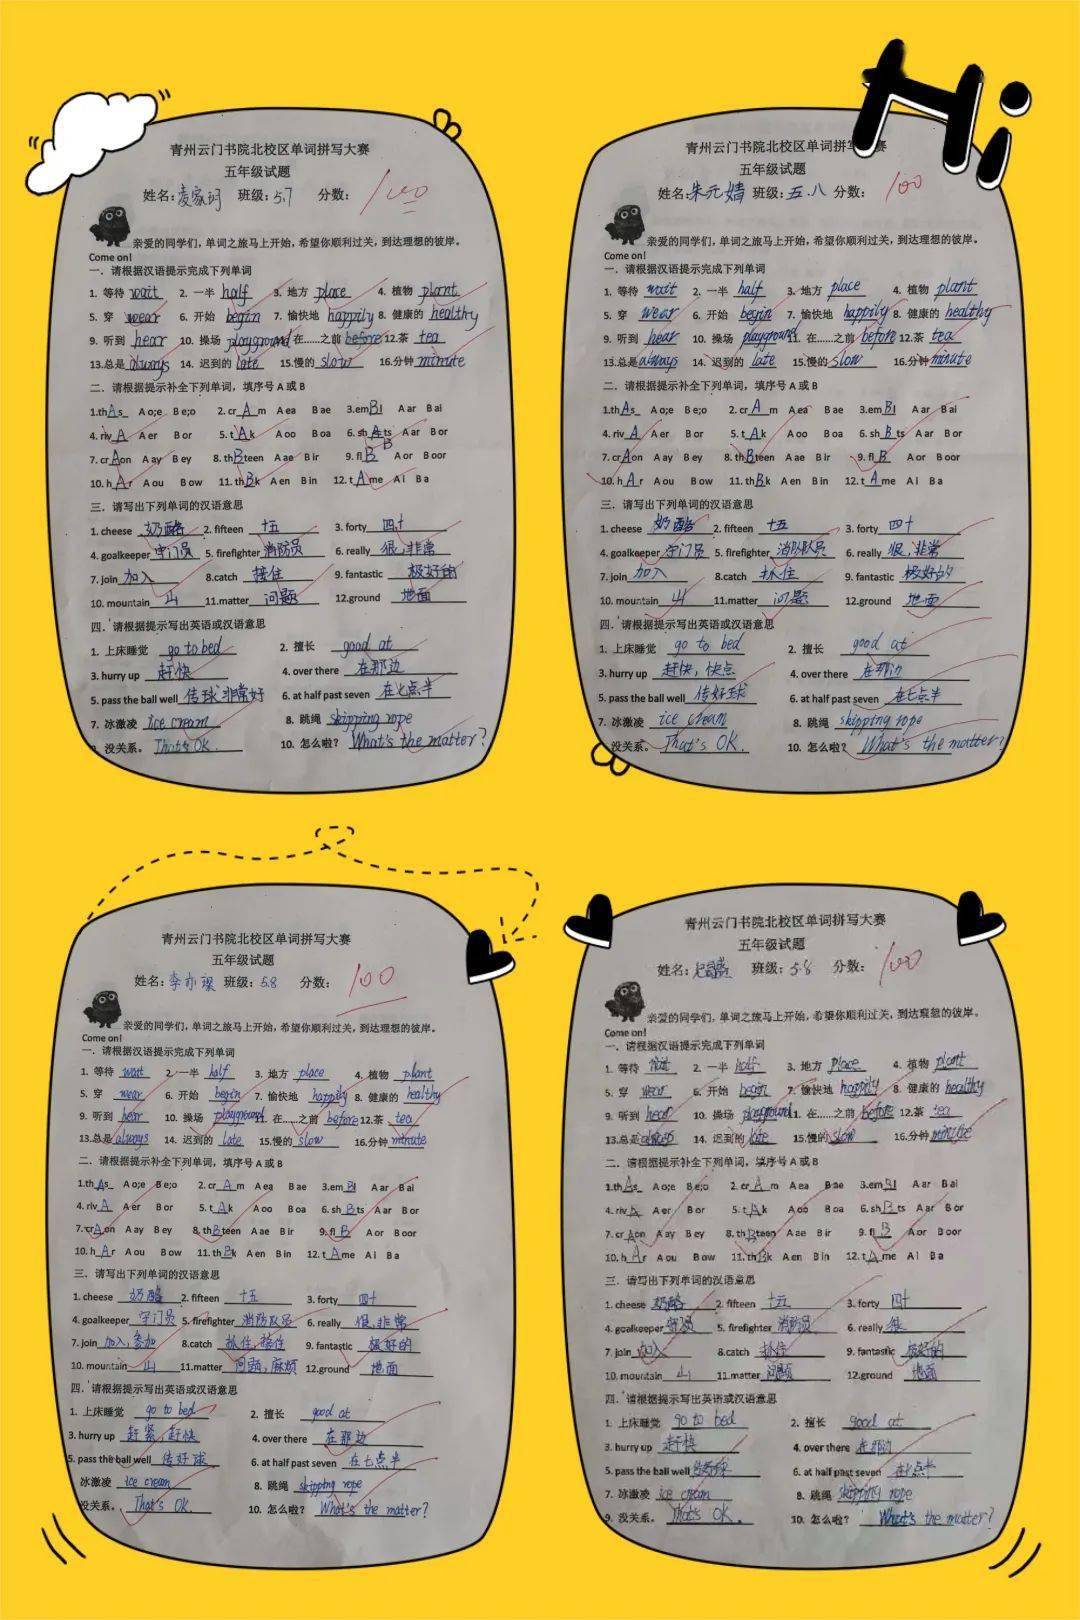 Hi
青州云门书院北校区单词拼写大赛
五年级试题
姓名: 班级: 5.7 分数: 100
亲爱的同学们，单词之旅马上开始，希望你顺利过关，到达理想的彼岸。
Come on!
一．请根据汉语提示完成下列单词
1. 等待 wait 2. 一半 half 3. 地方 place 4. 植物 plant
5. 穿 wear 6. 开始 begin 7. 愉快地 happily 8. 健康的 healthy
9. 听到 hear 10. 操场 playground 在......之前 before 12.茶 tea
13.总是 always 14. 迟到的 late 15.慢的 slow 16.分钟 minute
二．请根据提示补全下列单词，填序号 A 或 B
1.thAs_ A o;e B e;o 2. crAm A ea B ae 3.emB A ar B ai
4. rivA A er B or 5. tAk A oo B oa 6. shts B A ar B or
7. crAon A ay B ey 8. thBteen A ae B ir 9. flB A or B oor
10. hAr A ou B ow 11. thBk A en B in 12. tAme A i B a
三．请写出下列单词的汉语意思
1. cheese 奶酪 2. fifteen 十五 3. forty 四十
4. goalkeeper 守门员 5. firefighter 消防员 6. really 很,非常
7. join 加入 8.catch 接住 9. fantastic 极好的
10. mountain 山 11.matter 问题 12.ground 地面
四．请根据提示写出英语或汉语意思
1. 上床睡觉 go to bed 2. 擅长 good at
3. hurry up 赶快 4. over there 在那边
5. pass the ball well 传球非常好 6. at half past seven 在七点半
7. 冰激凌 ice cream 8. 跳绳 skipping rope
没关系。 That's OK. 10. 怎么啦？ What's the matter?
青州云门书院北校区单词拼写大赛
五年级试题
姓名: 朱元婧 班级: 五.八 分数: 100
亲爱的同学们，单词之旅马上开始，希望你顺利过关，到达理想的彼岸。
Come on!
一．请根据汉语提示完成下列单词
1. 等待 wait 2. 一半 half 3. 地方 place 4. 植物 plant
5. 穿 wear 6. 开始 begin 7. 愉快地 happily 8. 健康的 healthy
9. 听到 hear 10. 操场 playground 在......之前 before 12.茶 tea
13.总是 always 14. 迟到的 late 15.慢的 slow 16.分钟 minute
二．请根据提示补全下列单词，填序号 A 或 B
1.thAs_ A o;e B e;o 2. crAm A ea B ae 3.emB A ar B ai
4. rivA A er B or 5. tAk A oo B oa 6. shBts A ar B or
7. crAon A ay B ey 8. thBteen A ae B ir 9. flB A or B oor
10. hAr A ou B ow 11. thBk A en B in 12. tAme A i B a
三．请写出下列单词的汉语意思
1. cheese 奶酪 2. fifteen 十五 3. forty 四十
4. goalkeeper 守门员 5. firefighter 消防队员 6. really 很,非常
7. join 加入 8.catch 抓住 9. fantastic 极好的
10. mountain 山 11.matter 问题 12.ground 地面
四．请根据提示写出英语或汉语意思
1. 上床睡觉 go to bed 2. 擅长 good at
3. hurry up 赶快, 快点 4. over there 在那边
5. pass the ball well 传好球 6. at half past seven 在七点半
7. 冰激凌 ice cream 8. 跳绳 skipping rope
没关系。 That's OK. 10. 怎么啦？ What's the matter?
青州云门书院北校区单词拼写大赛
五年级试题
姓名: 班级: 5.8 分数: 100
亲爱的同学们，单词之旅马上开始，希望你顺利过关，到达理想的彼岸。
Come on!
一．请根据汉语提示完成下列单词
1. 等待 wait 2. 一半 half 3. 地方 place 4. 植物 plant
5. 穿 wear 6. 开始 begin 7. 愉快地 happily 8. 健康的 healthy
9. 听到 hear 10. 操场 playground 在......之前 before 12.茶 tea
13.总是 always 14. 迟到的 late 15.慢的 slow 16.分钟 minute
二．请根据提示补全下列单词，填序号 A 或 B
1.thAs_ A o;e B e;o 2. crAm A ea B ae 3.emB A ar B ai
4. rivA A er B or 5. tAk A oo B oa 6. shBts A ar B or
7. crAon A ay B ey 8. thBteen A ae B ir 9. flB A or B oor
10. hAr A ou B ow 11. thBk A en B in 12. tAme A i B a
三．请写出下列单词的汉语意思
1. cheese 奶酪 2. fifteen 十五 3. forty 四十
4. goalkeeper 守门员 5. firefighter 消防队员 6. really 很,非常
7. join 加入,参加 8.catch 抓住,接住 9. fantastic 极好的
10. mountain 山 11.matter 问题,麻烦 12.ground 地面
四．请根据提示写出英语或汉语意思
1. 上床睡觉 go to bed 2. 擅长 good at
3. hurry up 赶紧,赶快 4. over there 在那边
5. pass the ball well 传好球 6. at half past seven 在七点半
冰激凌 ice cream 8. 跳绳 skipping rope
没关系。 That's OK. 10. 怎么啦？ What's the matter?
青州云门书院北校区单词拼写大赛
五年级试题
姓名: 班级: 5.8 分数: 100
亲爱的同学们，单词之旅马上开始，希望你顺利过关，到达理想的彼岸。
Come on!
一．请根据汉语提示完成下列单词
1. 等待 wait 2. 一半 half 3. 地方 place 4. 植物 plant
5. 穿 wear 6. 开始 begin 7. 愉快地 happily 8. 健康的 healthy
9. 听到 hear 10. 操场 playground 在......之前 before 12.茶 tea
13.总是 always 14. 迟到的 late 15.慢的 slow 16.分钟 minute
二．请根据提示补全下列单词，填序号 A 或 B
1.thAs_ A o;e B e;o 2. crAm A ea B ae 3.emB A ar B ai
4. rivA A er B or 5. tAk A oo B oa 6. shBts A ar B or
7. crAon A ay B ey 8. thBteen A ae B ir 9. flB A or B oor
10. hAr A ou B ow 11. thBk A en B in 12. tAme A i B a
三．请写出下列单词的汉语意思
1. cheese 奶酪 2. fifteen 十五 3. forty 四十
4. goalkeeper 5. firefighter 消防员 6. really 很
7. join 加入 8.catch 抓住 9. fantastic 极好的
10. mountain 山 11.matter 问题 12.ground 地面
四．请根据提示写出英语或汉语意思
1. 上床睡觉 go to bed 2. 擅长 good at
3. hurry up 赶快 4. over there 在那边
5. pass the ball well 6. at half past seven 在七点半
7. 冰激凌 ice cream 8. 跳绳 skipping rope
9. 没关系。 That's OK. 10. 怎么啦？ What's the matter?